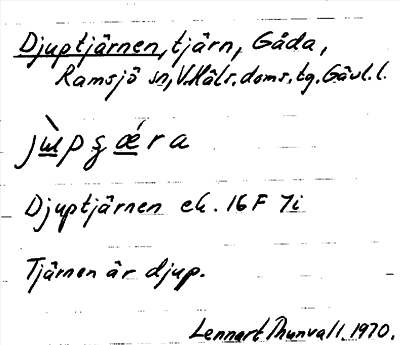 Djuptjärnen, tjärn, Gåda,
Ramsjö sn, V. Häls. doms. tg. Gävl. l.
jùpʂǽra
Djuptjärnen ek. 16 F 7i
Tjärnen är djup.
Lennart Thunvall 1970.